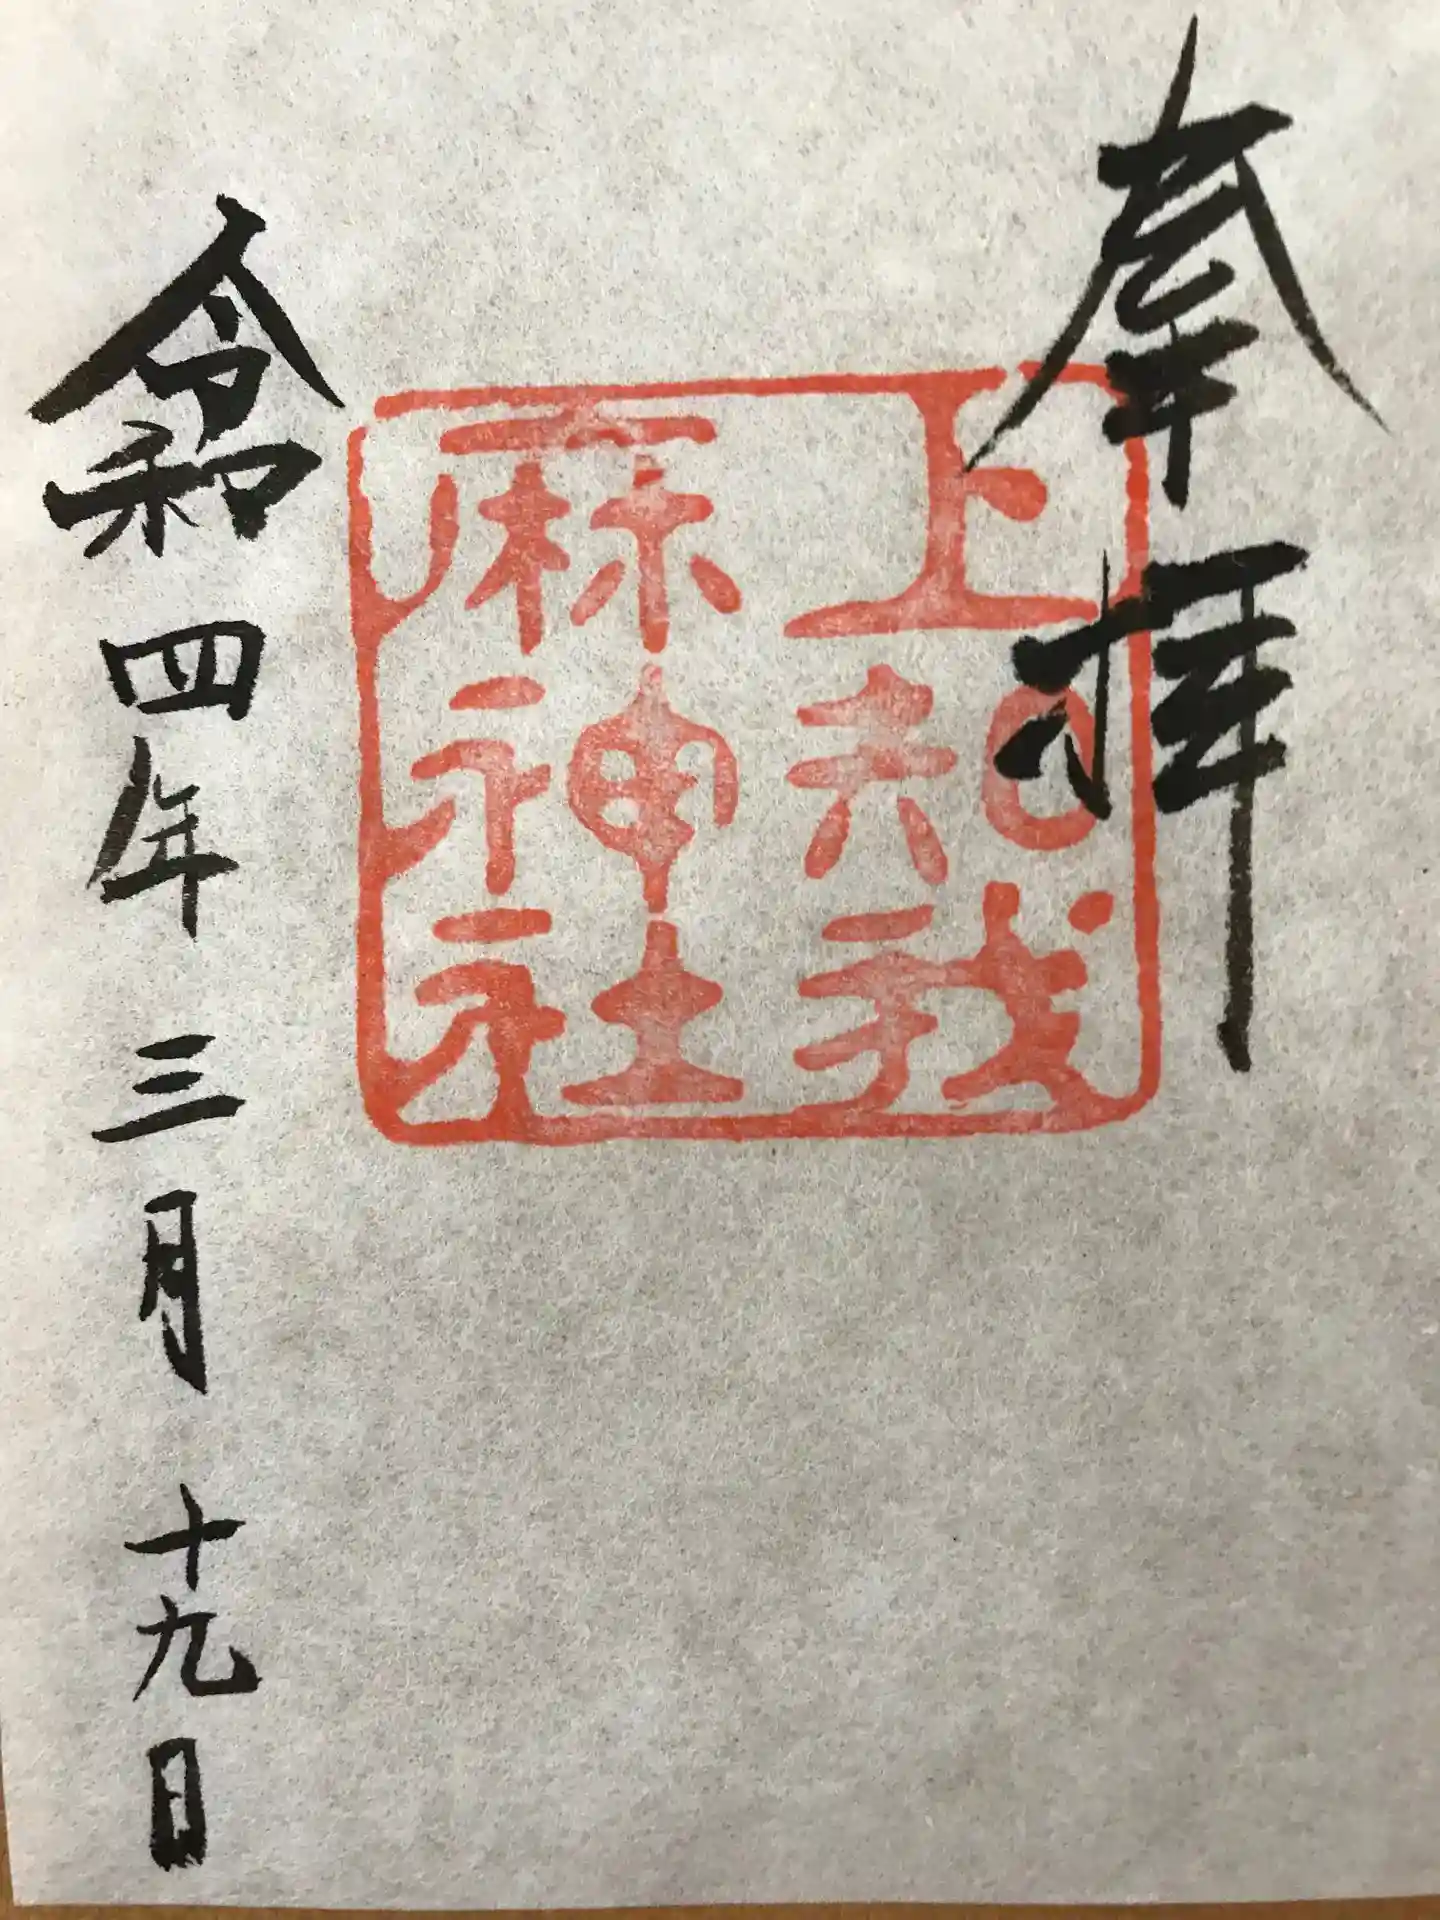 奉拝
上知我
麻神社
令和四年三月十九日